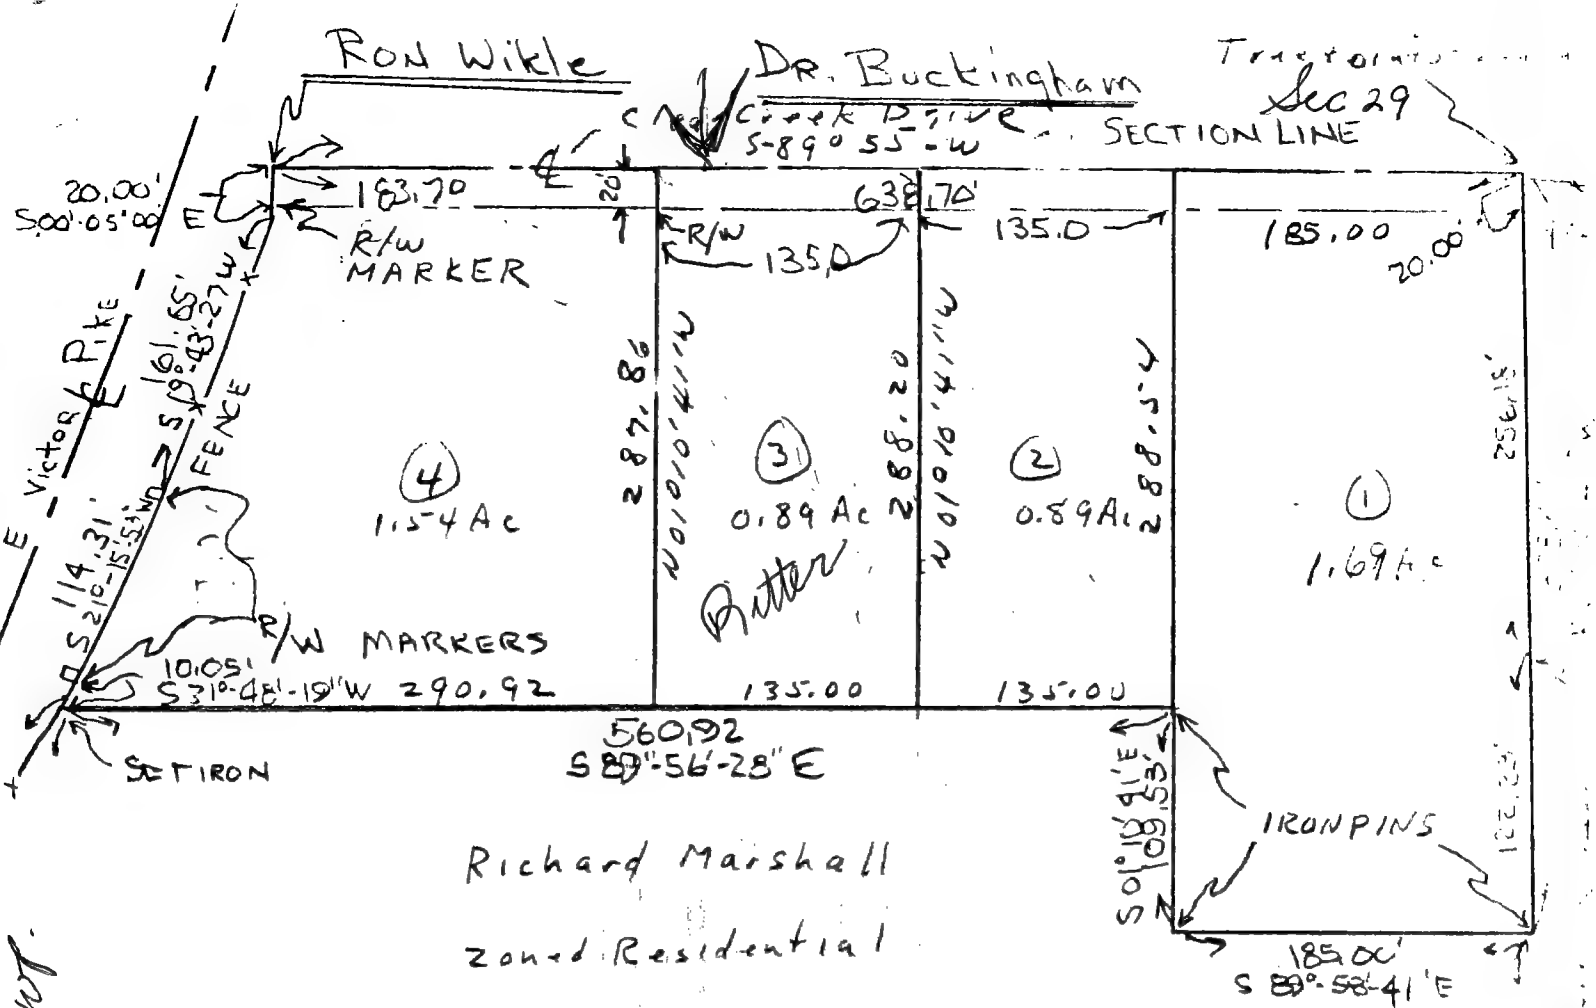 RON Wikle
DR. Buckingham
Sec 29
Creek Drive
S-89° 55'-W
SECTION LINE
20.00'
S00'-05'00"
E
183.70
20'
638.70'
R/W
MARKER
R/W
135.0
135.0
185.00
20.00'
161.65'
S 19°-43'-27"W
FENCE
E Victor Pike
114.31'
S 21°-15'-53"W
287.86
N01°10'41"W
288.20
N01°10'41"W
288.54
256.15'
4
1.54 Ac
3
0.89 Ac
Ritter
2
0.89 Ac
1
1.69 Ac
R/W MARKERS
10.05'
S31°-48'-19"W
290.92
135.00
135.00
560.92
S 89°-56'-28" E
SET IRON
S 01°10'41"E
109.53'
IRON PINS
122.23'
Richard Marshall
zoned Residential
185.00'
S 89°-58'-41"E